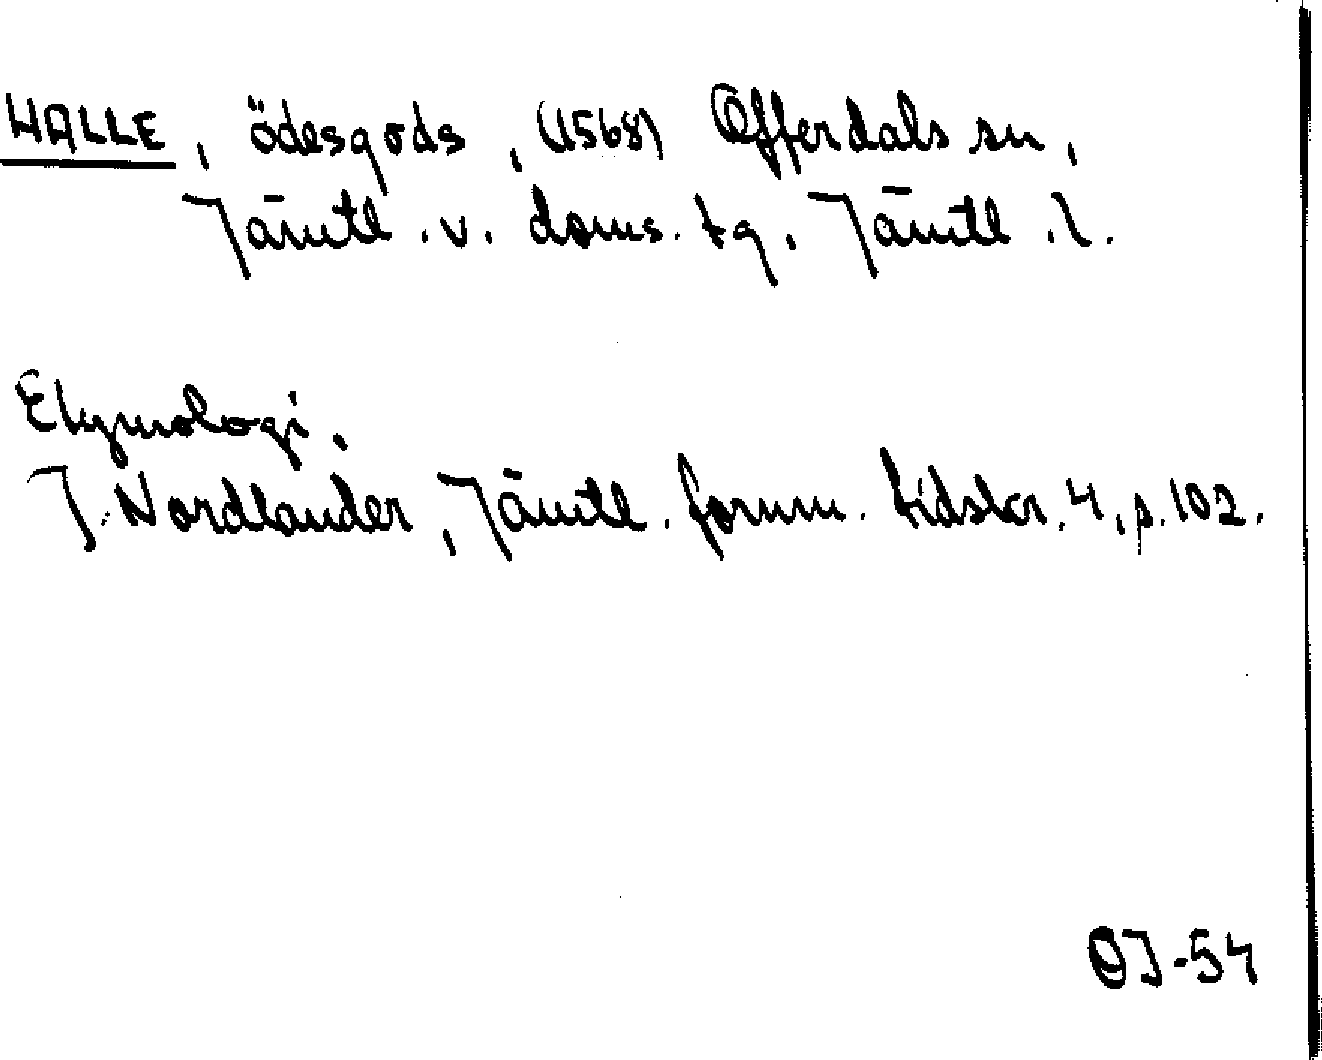 HALLE, ödesgods, (1568) Offerdals sn,
Jämtl. v. doms. tg. Jämtl. l.
Etymologi.
J. Nordlander, Jämtl. fornm. tidskr. 4, p. 102.
OJ-54